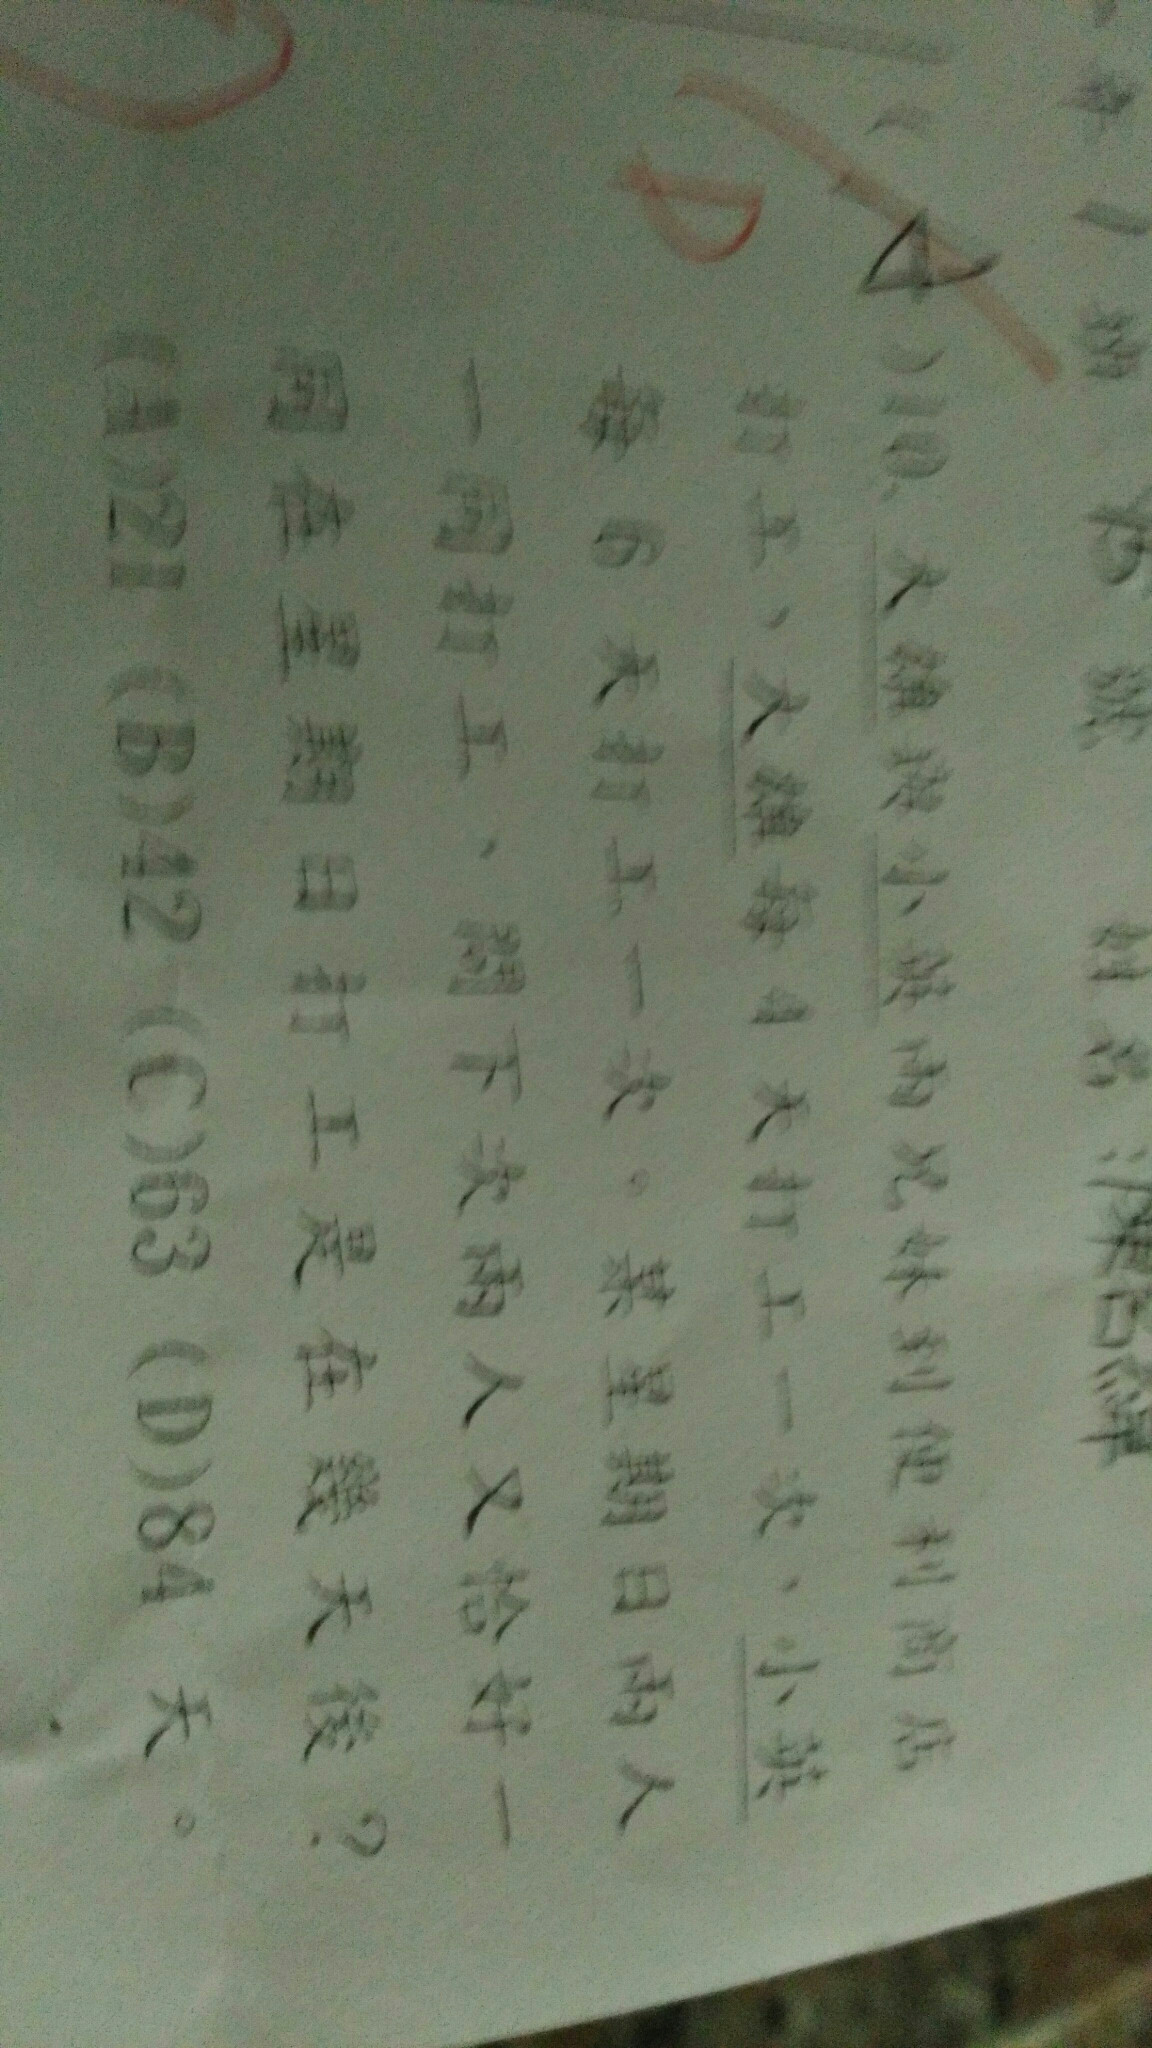 (A)10.大雄與小英兩兄妹到便利商店
打工、大雄每4天打工一次,小英
每6天打工一次。某星期日兩人
一同打工、問下次兩人又恰好一
同在星期日打工是在幾天後?
(A)21 (B)42 (C)63 (D)84 天。
D